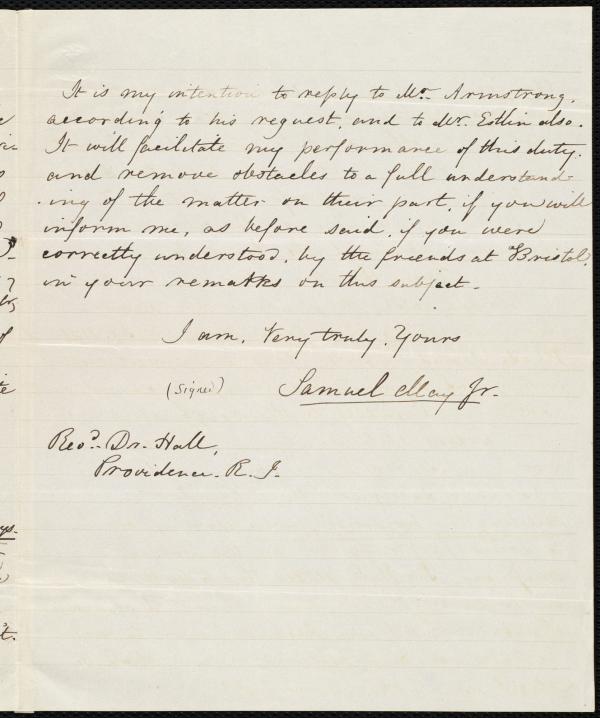 It is my intention to reply to Mr. Armstrong,
according to his request, and to Mr. Estlin also.
It will facilitate my performance of this duty,
and remove obstacles to a full understand-
-ing of the matter on their part, if you will
inform me, as before said, if you were
correctly understood, by the friends at Bristol,
in your remarks on this subject.
I am, Very truly, Yours
(Signed) Samuel May Jr.
Revd. Dr. Hall,
Providence. R. I.